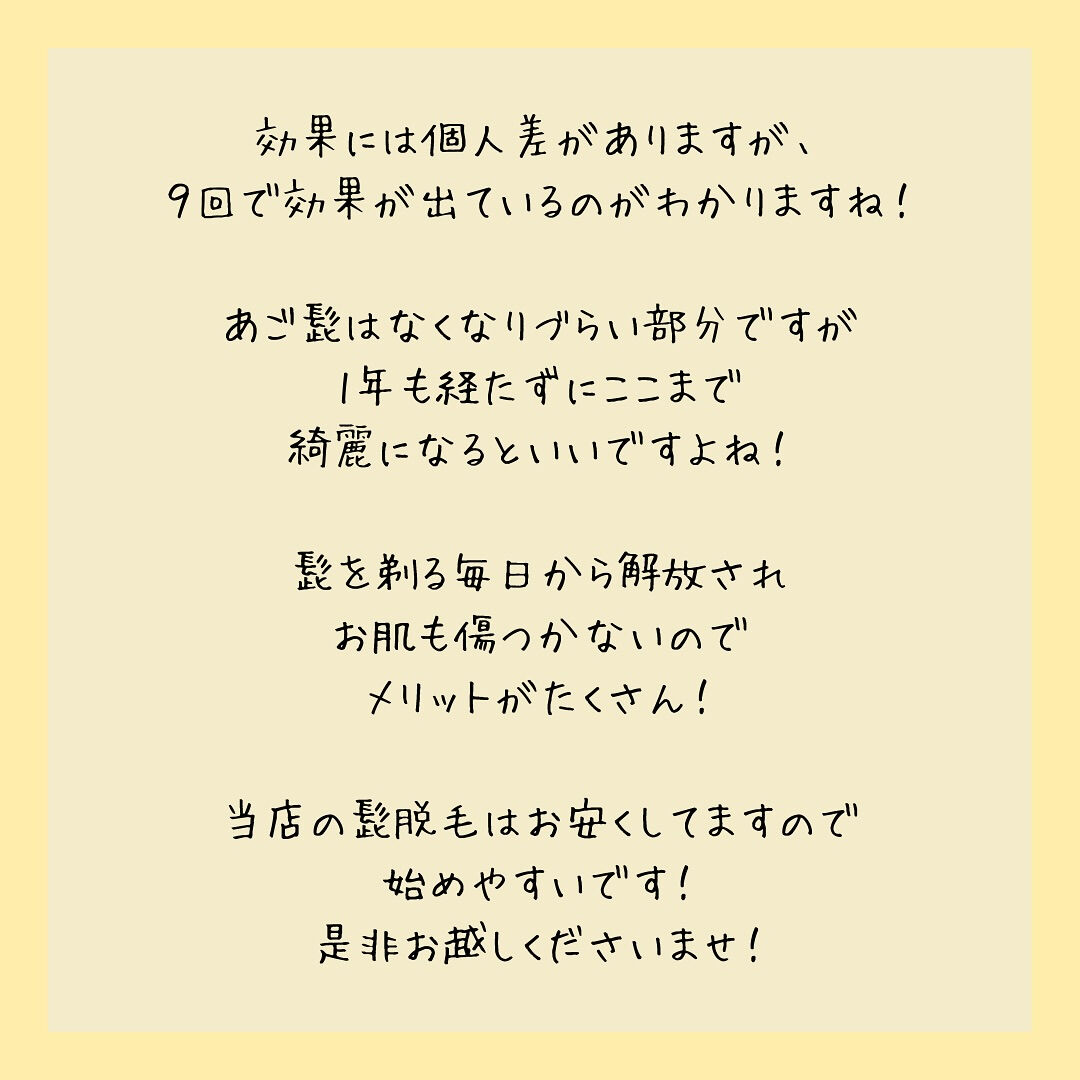 効果には個人差がありますが、
9回で効果が出ているのがわかりますね!
あご髭はなくなりづらい部分ですが
1年も経たずにここまで
綺麗になるといいですよね!
髭を剃る毎日から解放され
お肌も傷つかないので
メリットがたくさん!
当店の髭脱毛はお安くしてますので
始めやすいです!
是非お越しくださいませ!